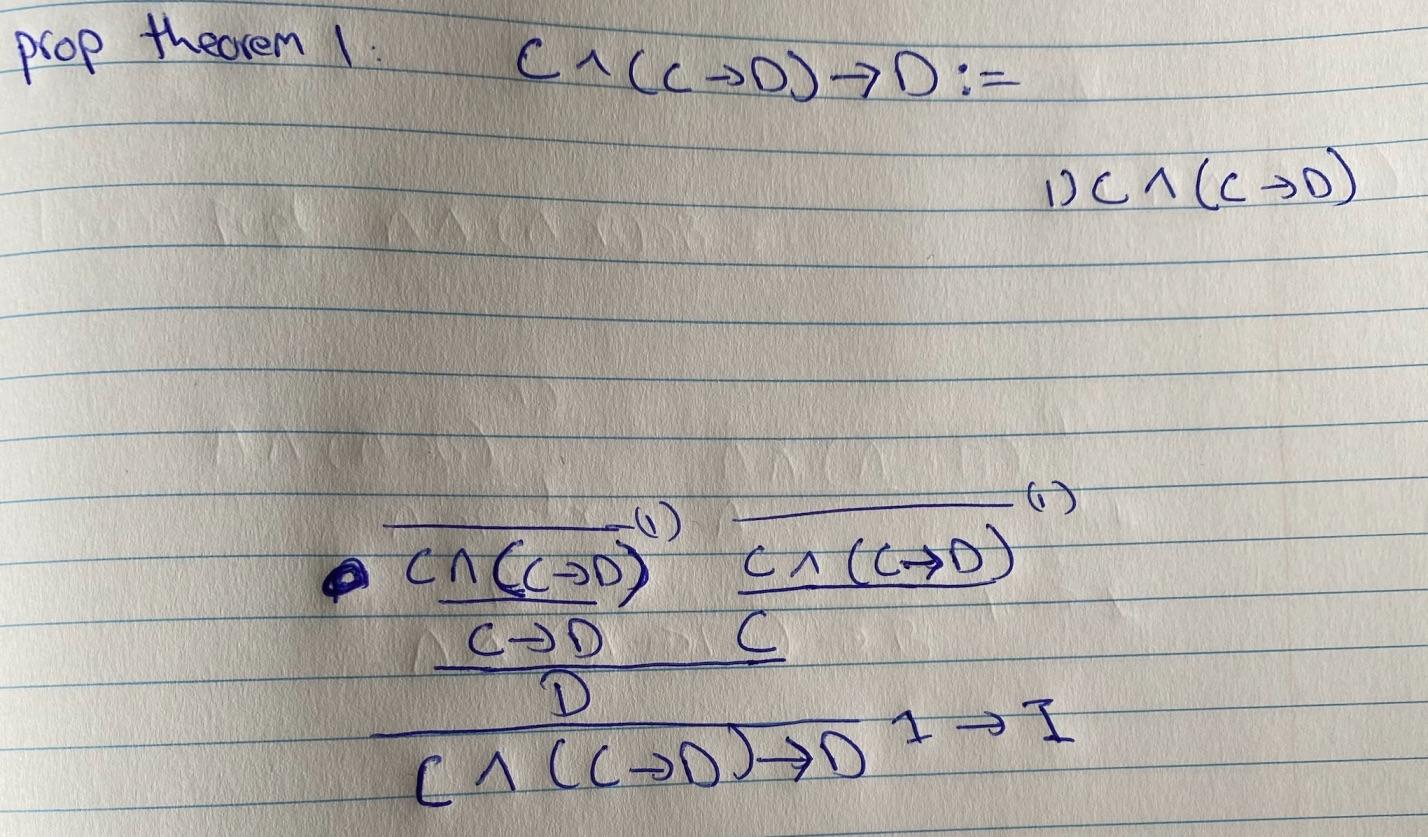 prop theorem 1: C ∧ (C → D) → D :=
1) C ∧ (C → D)
(1) (1)
C ∧ (C → D) C ∧ (C → D)
C → D C
D
C ∧ (C → D) → D 1 → I